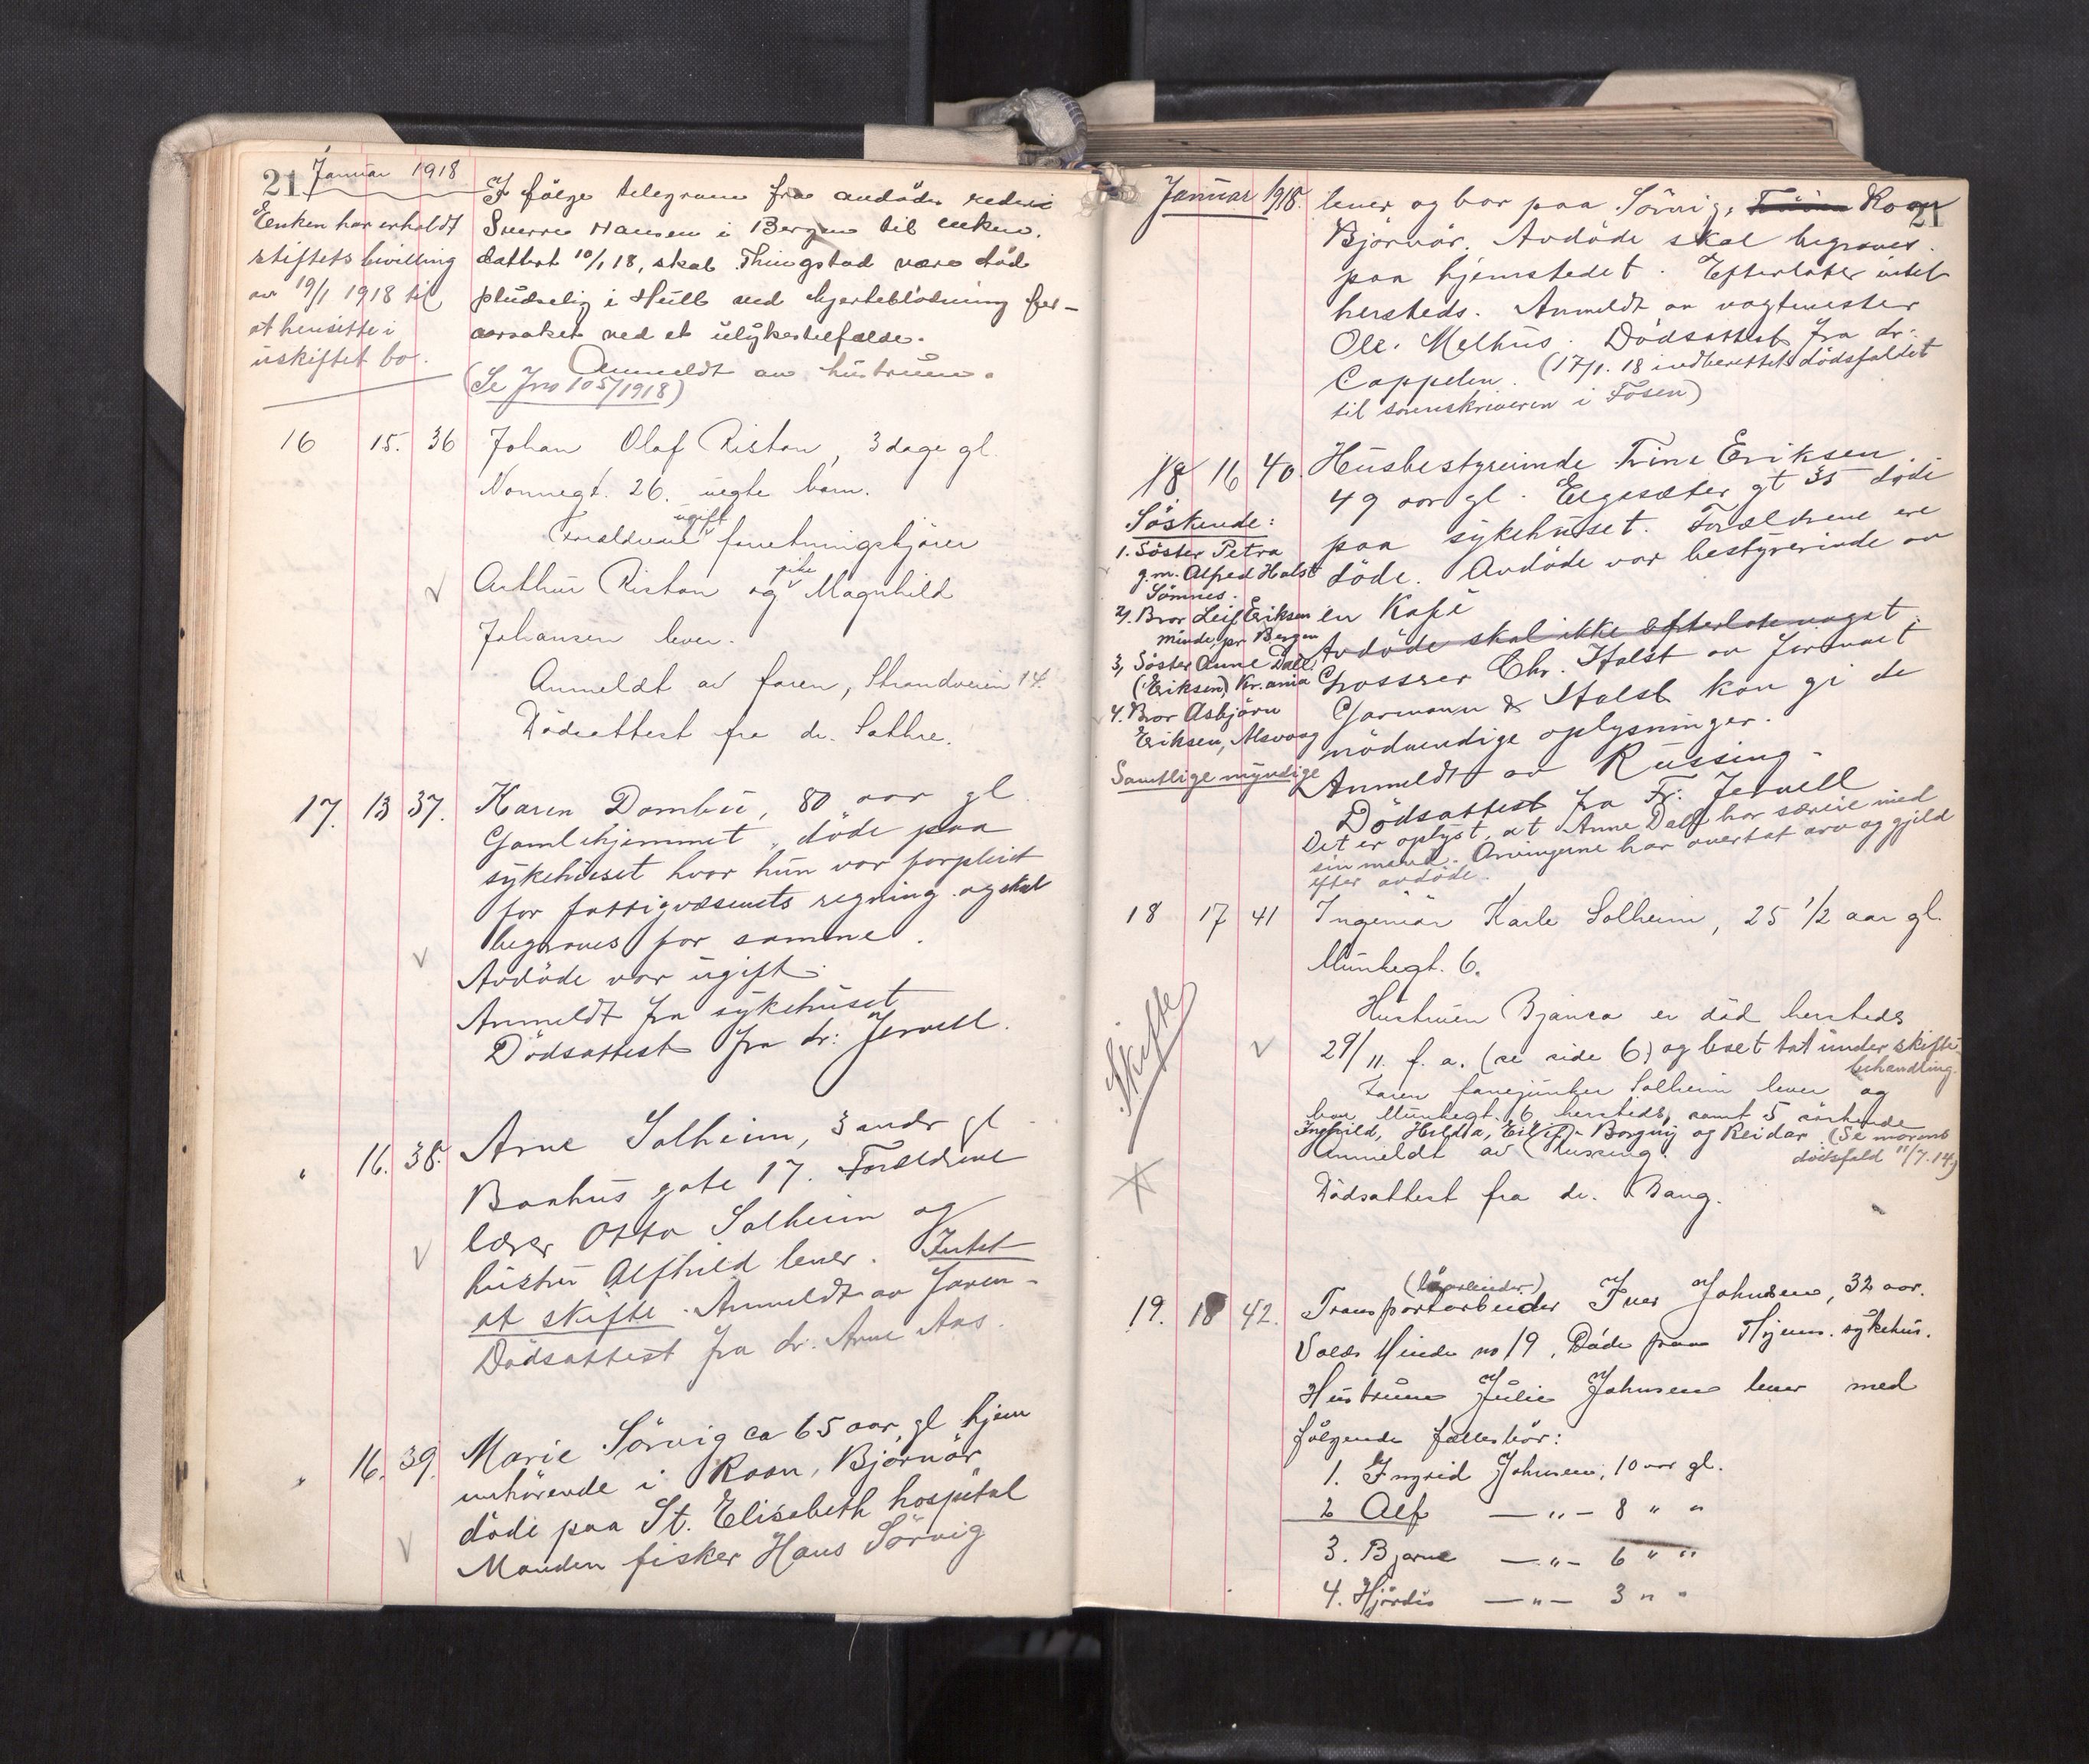 21 Januar 1918
Enken har erholdt
stiftets bevilling
av 19/1 1918 til
at hensitte i
uskiftet bo.
I følge telegram fra avdødes rederi
Sverre Hansen i Bergen til enken.
dattert 10/1 18, skal Thingstad være død
pludselig i Hull ved hjerteblødning for-
aarsaket ved et ulykkestilfælde.
Anmeldt av hustruen.
(Se Jno 105/1918)
16 15. 36 Johan Olaf Ristan, 3 dage gl.
Nonnegt. 26. uegte barn.
Forældrene ugift forretningskjører
Arthur Ristan og pike Magnhild
Johansen lever.
Anmeldt av faren, Strandveien 14.
Dødsattest fra dr. Sæthre.
17. 13 37. Karen Dombu, 80 aar gl
Gamlehjemmet, døde paa
sykehuset hvor hun var forpleiet
for fattigvæsenets regning og skal
begraves for samme.
Avdøde var ugift.
Anmeldt fra sykehuset
Dødsattest fra dr: Jervell.
" 16. 38. Arne Solheim, 3 mndr gl
Baahus gate 17. Forældrene
lærer Otto Solheim og
hustru Alfhild lever. Intet
at skifte. Anmeldt av faren-
Dødsattest fra dr. Arne Aas.
" 16. 39. Marie Sörvig ca 65 aar gl hjem
mehörende i Roan, Björnör
döde paa St. Elisabeth hospital
Manden fisker Hans Sörvig
Januar 1918. 21
lever og bor paa Sörvig, Roan
Björnör. Avdöde skal begraves
paa hjemstedet. Efterlater intet
hersteds. Anmeldt av vagtmester
Ole. Melhus. Dödsattest fra dr.
Cappelen. (17/1. 18 indberettet dödsfaldet
til sorenskriveren i Fosen)
18 16 40. Husbestyrerinde Trine Eriksen.
49 aar gl. Elgesæter gt 35 döde
paa sykehuset. Forældrene ere
döde. Avdöde var bestyrerinde av
en Kafé
Avdöde skal ikke efterlate noget.
Grosser Chr. Holst av firmaet
Garmann & Holst kan gi de
nödvendige oplysninger.
Anmeldt av Russing-
Dödsattest fra Fr: Jervell
Det er oplyst, at Anne Dall har særeie med
sin mand. Arvingerne har overtat arv og gjeld
efter avdöde.
Söskende:
1. Söster Petra
g.m. Alfred Holst
Sömnes.
2. Bror Leif Eriksen
Minde, pr Bergen
3, Söster Anne Dall
(Eriksen) Kr.ania
4. Bror Asbjörn
Eriksen, Alsvaag
Samtlige myndige
18 17 41 Ingeniör Karle Solheim, 25 1/2 aar gl.
Munkegt. 6.
Hustruen Bjanca er död hersteds
29/11 f. a. (se side 6) og boet tat under skifte-
behandling.
Faren fanejunker Solheim lever og
bor Munkegt. 6 hersteds, samt 5 söskende
Ingfrid, Hildta, Borgny og Reidar. (Se morens
dödsfald 11/7.14)
Anmeldt av Russing.
Dödsattest fra dr. Bang.
Skifte
19. 18 42. Transportarbeider Iver Johnsen, 32 aar.
Volds Minde no 19, Döde paa Hjem. sykehus.
Hustruen Julie Johnsen lever med
fölgende fællesbör:
1. Ingrid Johnsen, 10 aar gl.
2 Alf —"— 8 " "
3. Bjarne —"— 6 " "
4. Hjördis —"— 3 " "